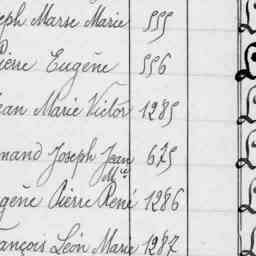 eph Marse Marie 555
ierre Eugène 556
ean Marie Victor 1285
mand Joseph Jean 675
Mie
gène Pierre René 1286
ançois Léon Marie 1287